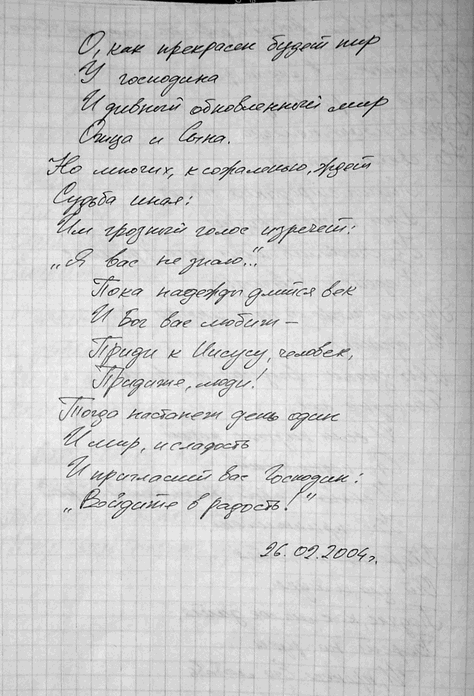 О, как прекрасен будет пир
У господина
И дивный обновленный мир
Отца и Сына.
Но многих, к сожаленью, ждет
Судьба иная:
Им грозный голос изречет:
„Я вас не знаю..."
Пока надежды длится век
И Бог вас любит –
Приди к Иисусу, человек,
Придите, люди!
Тогда настанет день один
И мир, и сладость
И пригласит вас Господин:
„Войдите в радость!"
26.02.2004г.